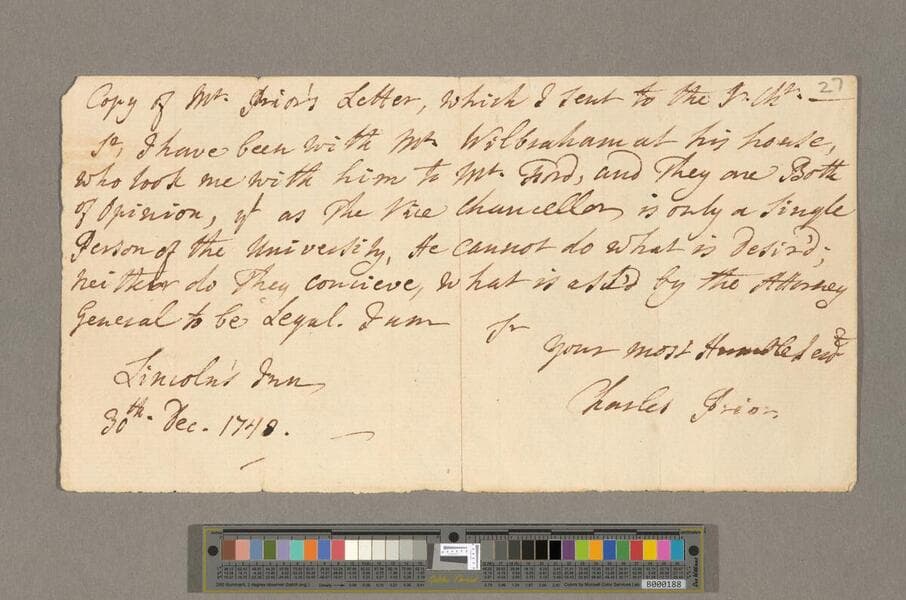 27
Copy of Mr. Prior's Letter, which I sent to the V. Chr. —
Sr, I have been with Mr. Wilbraham at his house,
who took me with him to Mr. Ford, and They are Both
of Opinion, yt as The Vice Chancellor is only a Single
Person of the University, He cannot do what is desir'd;
neither do They concieve, what is ask'd by the Attorney
General to be Legal. I am
Sr
Your most Humble Servt
Charles Prior
Lincoln's Inn
30th. Dec. 1748. —
8000188